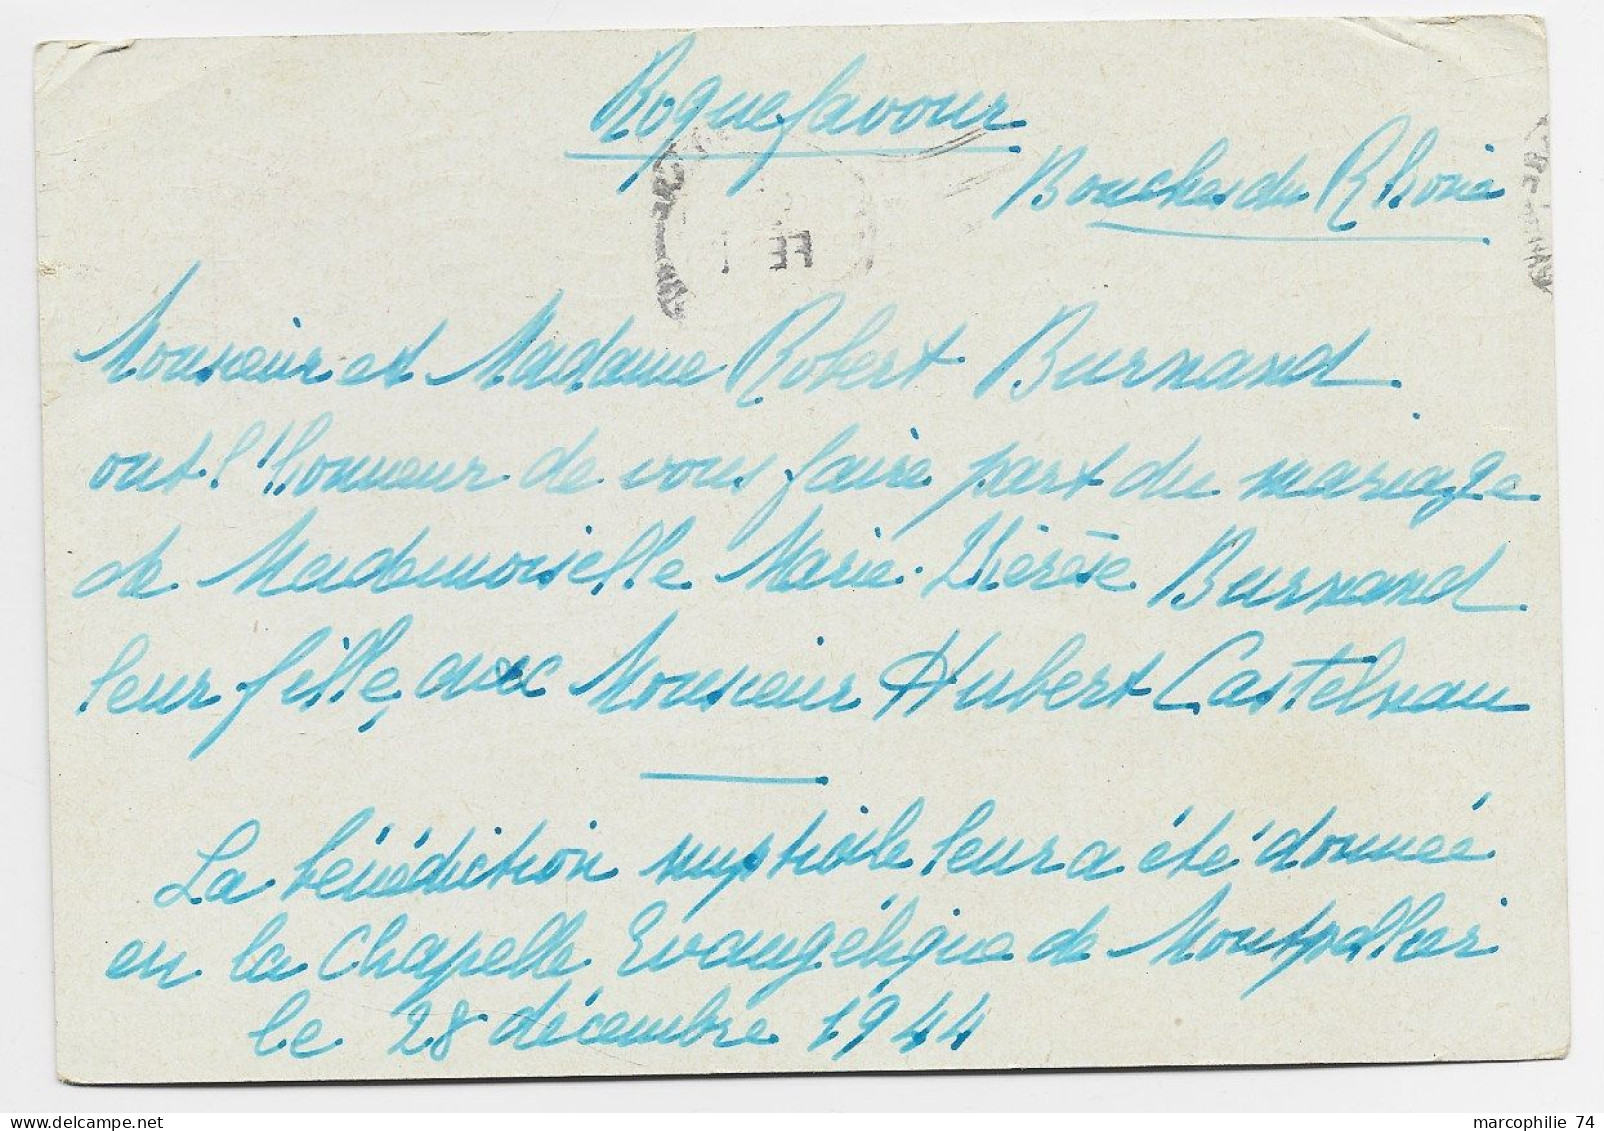 Roquefavour
Bouches du Rhône
Monsieur et Madame Robert Burnand
ont l'honneur de vous faire part du mariage
de Mademoiselle Marie-Thérèse Burnand
leur fille, avec Monsieur Hubert Castelnau
La bénédiction nuptiale leur a été donnée
en la Chapelle Evangélique de Montpellier
le 28 décembre 1944
marcophilie 74